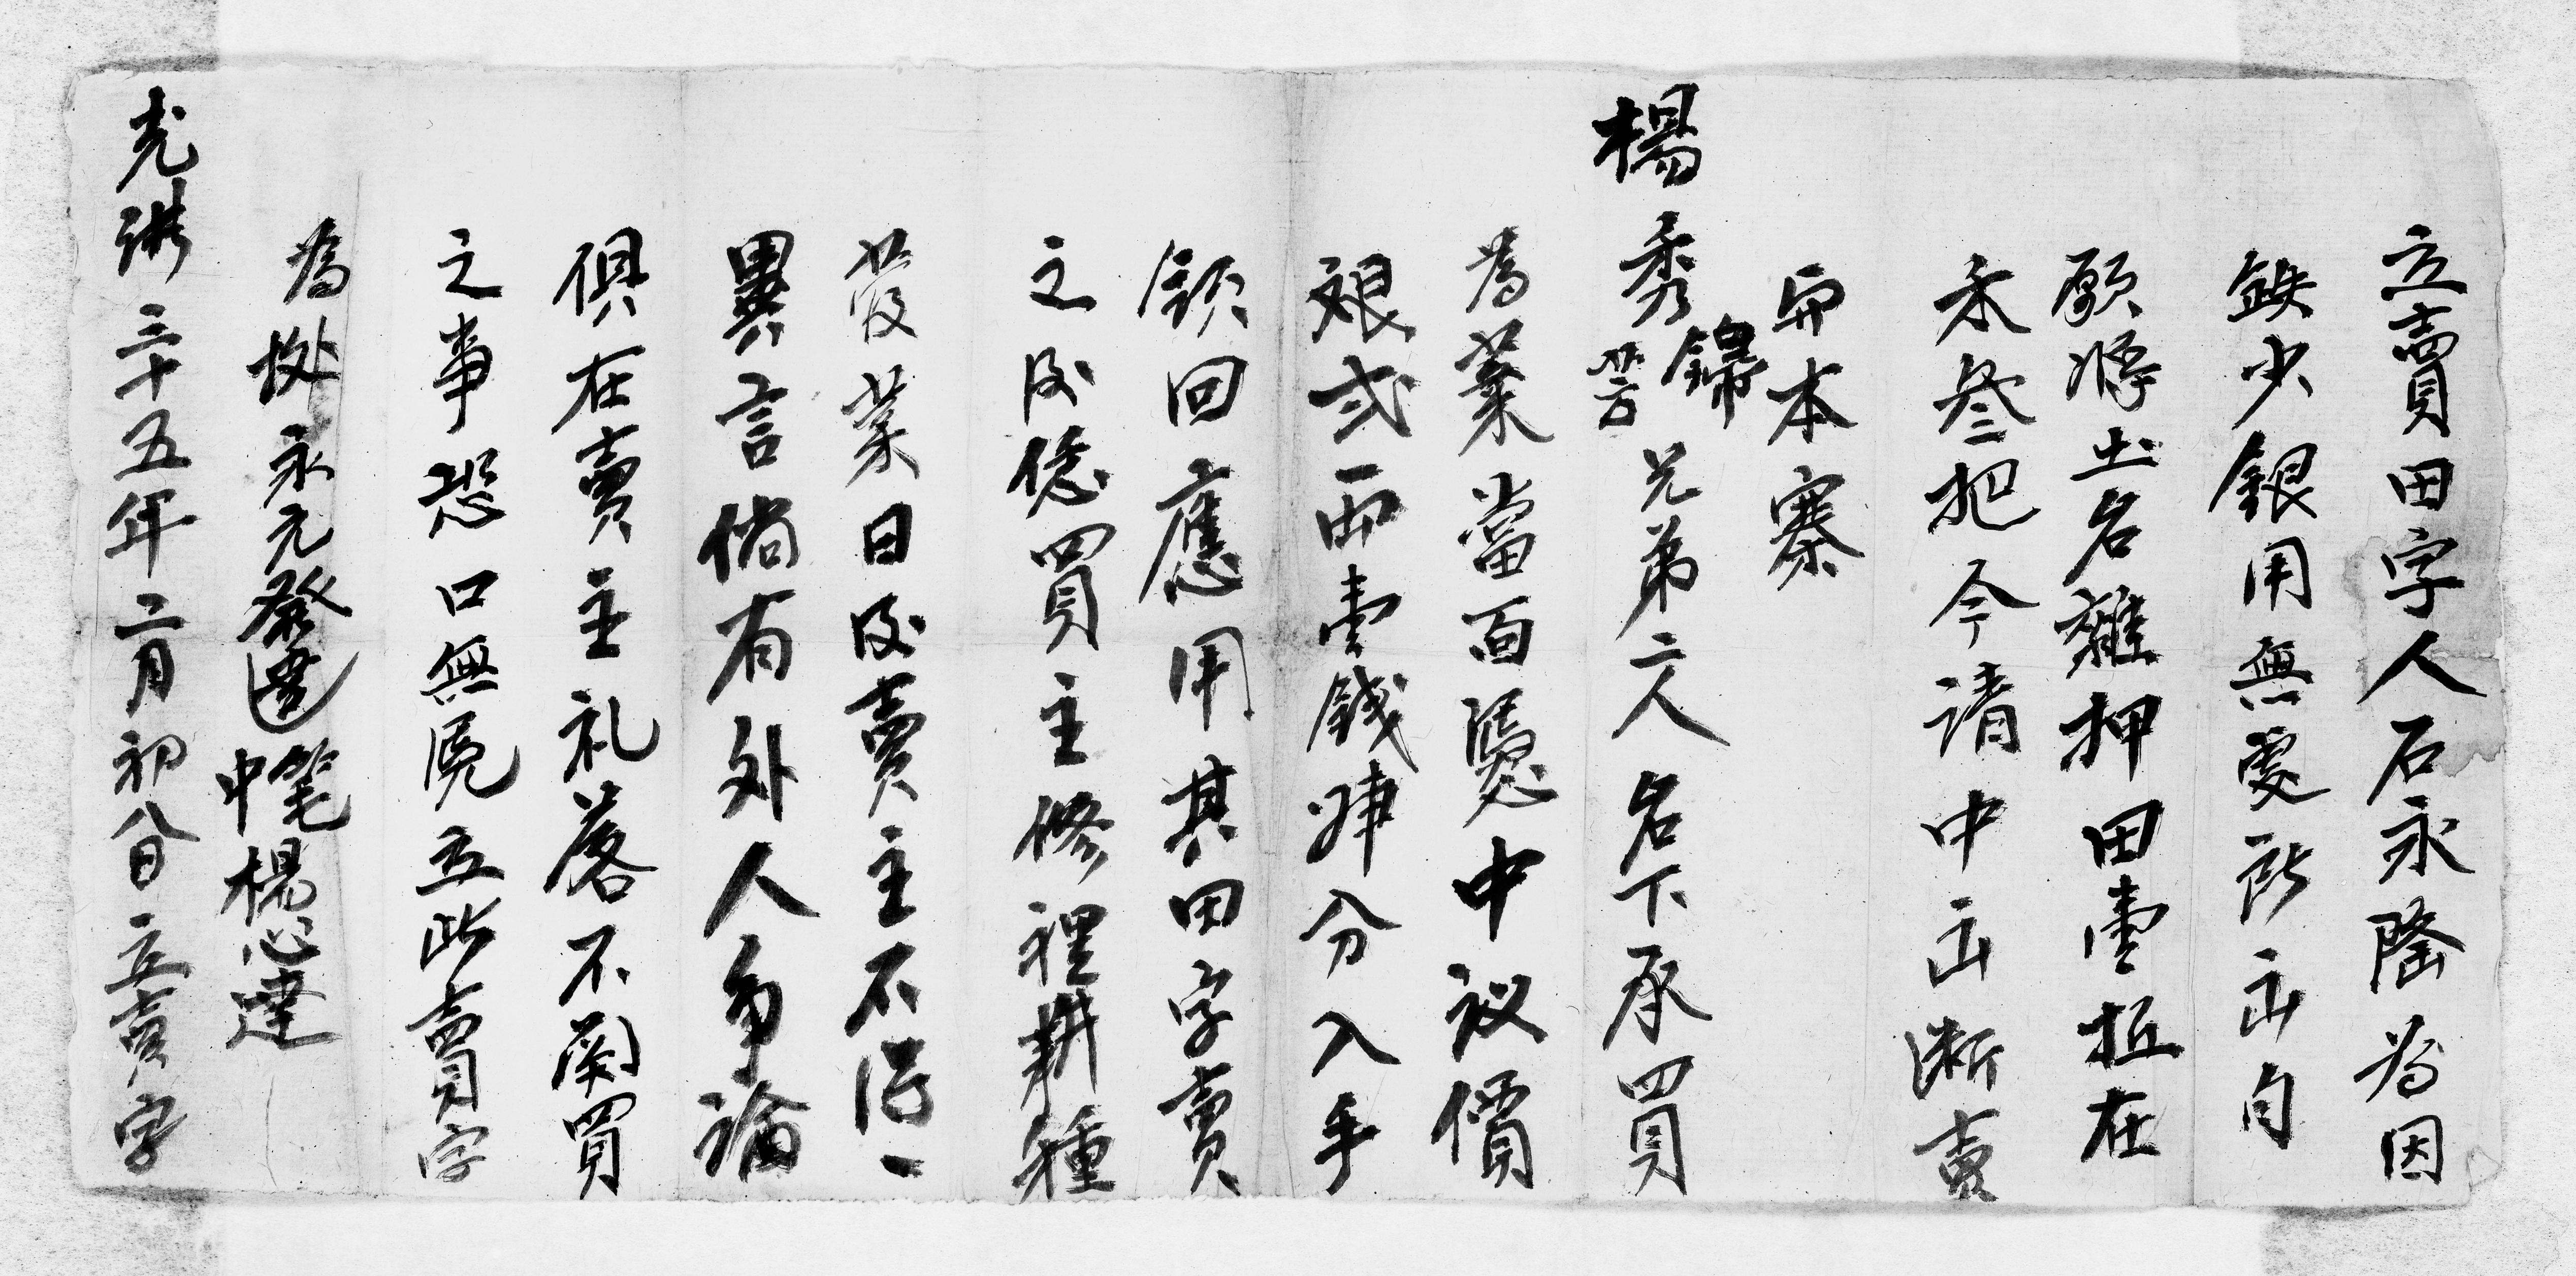 立賣田字人石永隆為因
缺少銀用無處所出自
願将土名雞押田壹坵在
禾叁把今請中出断賣
与本寨
楊秀錦詧兄弟二人名下承買
為業當面憑中議價
銀弍両壹錢肆分入手
領回應用其田字賣
之後憑買主修理耕種
管業日後賣主不得
異言倘有外人争論
俱在賣主礼落不関買
之事恐口無凴立此賣字
為拠永元發達中筆楊心達
光緒三十五年二月初八日立賣字